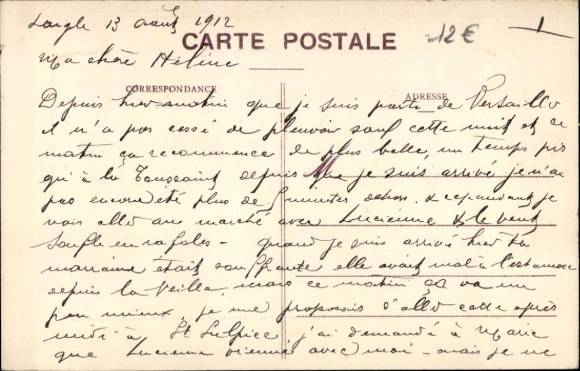 Laigle 13 août 1912
12€
1
CARTE POSTALE
Ma chère Hélène
CORRESPONDANCE
ADRESSE
Depuis hier matin que je suis partie de Versailles
il n'a pas cessé de pleuvoir sauf cette nuit et ce
matin ça recommence de plus belle, un temps pis
qu'à la Toussaint depuis que je suis arrivé je n'ai
pas encore été plus de 5 minutes dehors. & cependant je
vais aller au marché avec Lucienne & le vent
souffle en rafales - quand je suis arrivé hier ta
marraine était souffrante elle avait mal à l'estomac
depuis la veille, mais ce matin ça va un
peu mieux, je me proposais d'aller cette après
midi à St Sulpice j'ai demandé à Marie
que Lucienne vienne avec moi - mais je ne